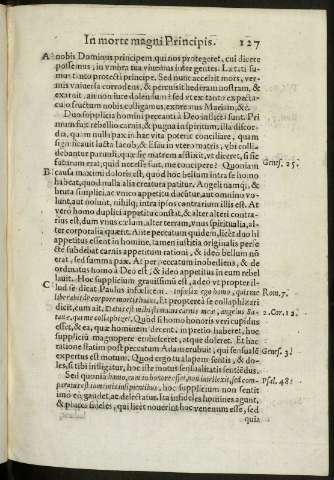 In morte magni Principis. 127
A nobis Dominus principem, qui nos protegeret, cui dicere
possemus, in vmbra tua viuemus inter gentes. Lætati su-
mus tanto protecti principe. Sed nunc accessit mors, ver-
mis vniuersa corrodens, & percussit hederam nostram, &
exaruit, an non iure dolendum? sed vt ex tanto expecta-
culo fructum nobis colligamus, extremus Marium; &
Duo supplicia homini peccanti à Deo inflicta sunt. Pri-
mum fuit rebellio carnis, & pugna in spiritum, illa discor-
dia, quam nulli pax in hac vita poterit conciliare, quam
significauit luctа Iacob, & Esau in vtero matris, vbi colli-
debantur paruuli, quæ sic matrem afflixerunt, vt diceret, si sic
futurum erat, quid necesse fuit, me concipere? Quoniam Genes. 25.
B causa maximi doloris est, quod hoc bellum intra se homo
habeat, quod nulla alia creatura patitur. Angeli namq;, &
bruta simplici, ac vnico appetitu ducuntur, aut omnino vo-
lunt, aut nolunt, nihilq; intra ipsos contrarium illis est. At
verò homo duplici appetitu constat, & alter alteri contra-
rius est, dum vnus cælum, alter terram, vnus spiritualia, al-
ter corporalia quærit. Ante peccatum quidem, licèt duo hi
appetitus essent in homine, tamen iustitia originalis perfe-
ctè subdebat carnis appetitum rationi, & ideo bellum non
erat, sed summa pax. At per peccatum inobediens, & de-
ordinatus homo à Deo est, & ideo appetitus in eum rebel
lauit. Hoc supplicium grauissimum est, adeo vt propter il-
C lud se dicat Paulus infœlicem: Infœlix ego homo, quis me Rom. 7.
liberabit de corpore mortis huius? Et propterea se collaphizari
dicit, cum ait. Datus est mihi stimulus carnis meæ, angelus Sa- 2. Cor. 12.
tanæ, qui me collaphizet. Quod si homo honoris veri cupidus
esset, & ea, quæ hominem decent, in pretio haberet, hoc
supplicium magnopere erubesceret, atque doleret. Et hac
ratione statim post peccatum Adam erubuit, qui sensualẽ Genes. 3.
expertus est motum. Quod ergo tu alapam sentis, & do-
les, si tibi infligatur, hoc iste motus sensualitatis sentiẽdus.
Sed quoniã homo, cum in honore esset, non intellexit, sed com- Psal. 48.
paratus est iumentis insipientibus, hoc supplicium non sentit
imo eo gaudet, ac delectatur. Ita infideles homines agunt,
& plures fideles, qui licèt nouerint hoc venenum esse, sed
quia